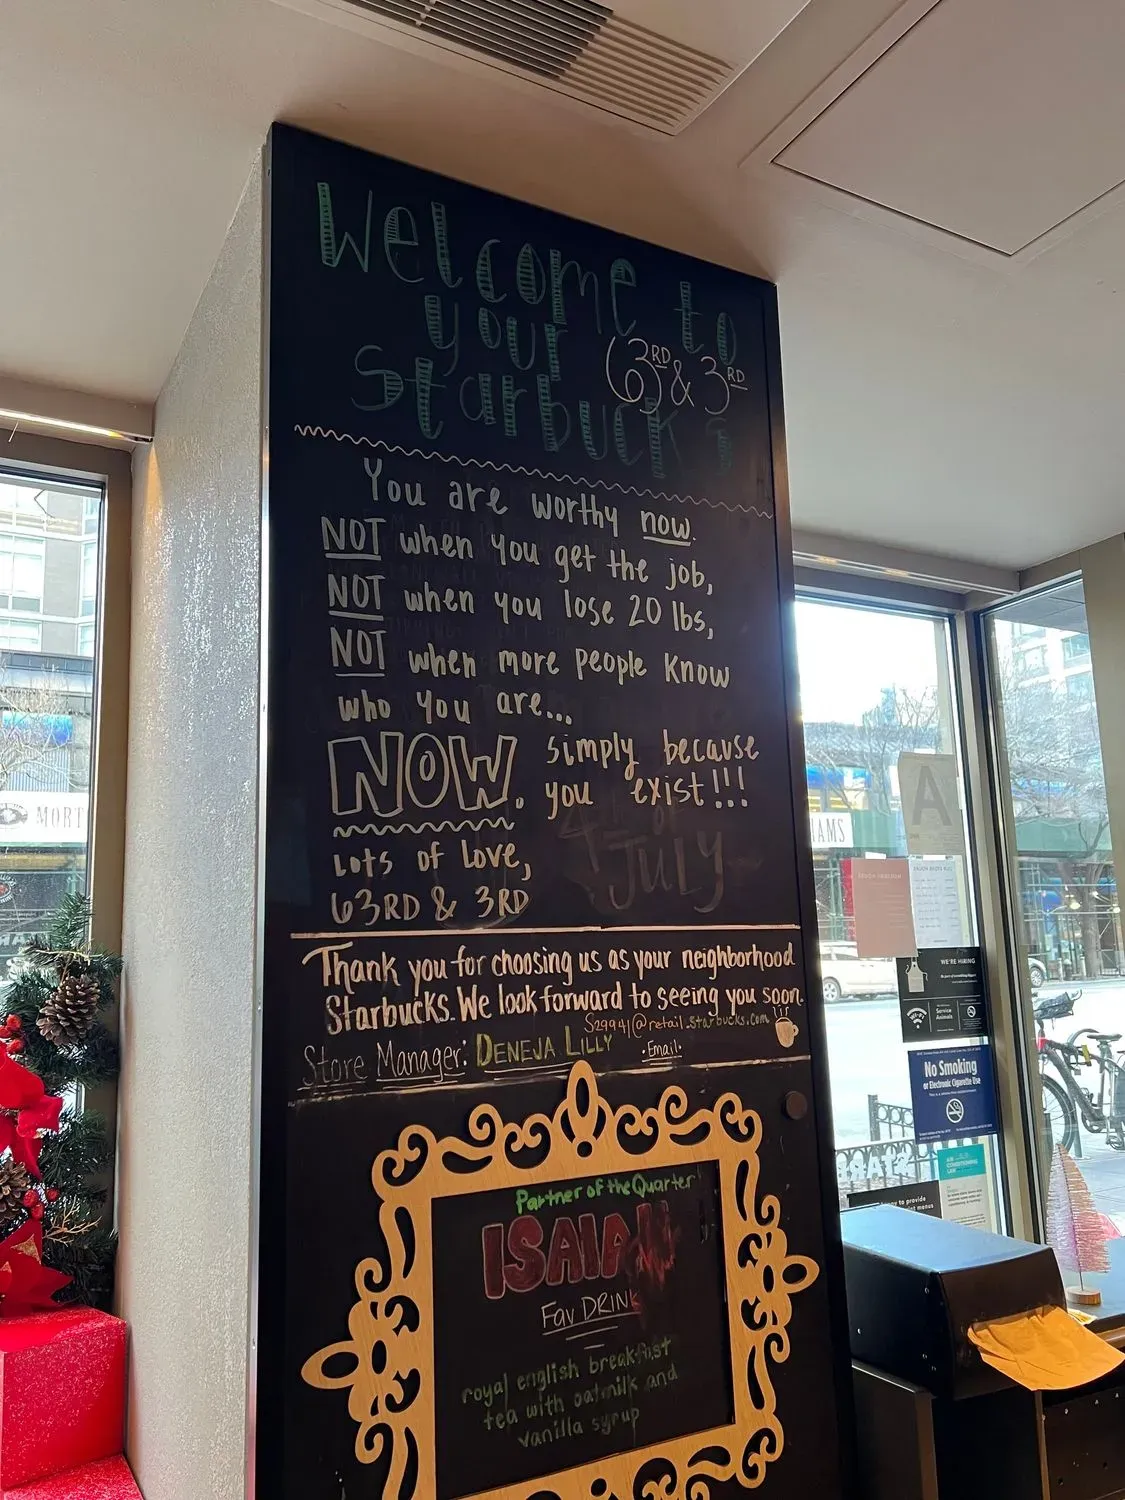 Welcome to
your 63RD & 3RD
Starbucks
You are worthy now.
NOT when you get the job,
NOT when you lose 20 lbs,
NOT when more people know
who you are...
NOW. simply because
you exist!!!
4TH OF
JULY
Lots of Love,
63RD & 3RD
Thank you for choosing us as your neighborhood
Starbucks. We look forward to seeing you soon.
S29941@retail.starbucks.com
Store Manager: DENEJA LILLY
·Email·
Partner of the Quarter
ISAIAH
Fav DRINK
royal english breakfast
tea with oatmilk and
vanilla syrup
MORT
AMS
A
WE'RE HIRING
Service
Animals
No Smoking
or Electronic Cigarette Use